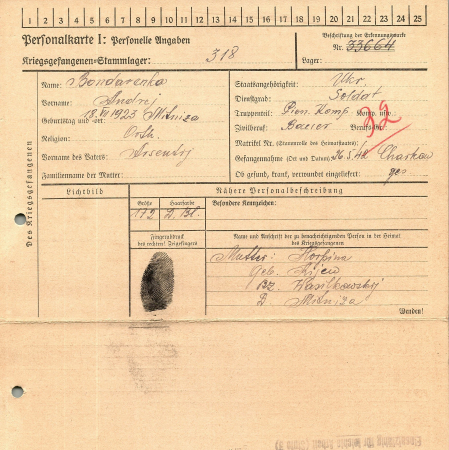 1 2 3 4 5 6 7 8 9 10 11 12 13 14 15 16 17 18 19 20 21 22 23 24 25
Personalkarte I: Personelle Angaben
Beschriftung der Erkennungsmarke
Nr. 33664
Kriegsgefangenen-Stammlager: 318
Lager:
Des Kriegsgefangenen
Name: Bondarenko
Vorname: Andrij
Geburtstag und -ort: 18. 1923
Religion: Orth.
Vorname des Vaters: Arsentij
Familienname der Mutter:
Staatsangehörigkeit: Ukr.
Dienstgrad: Soldat
Truppenteil: Pion. Komp. Komp. usw.:
Zivilberuf: Bauer Berufs-
32
Matrikel Nr. (Stammrolle des Heimatstaates):
Gefangennahme (Ort und Datum): 26.5.42 Charkow
Ob gesund, krank, verwundet eingeliefert: ges
Lichtbild
Nähere Personalbeschreibung
Größe
Haarfarbe
Besondere Kennzeichen:
172
D. Bl.
Fingerabdruck
des rechten! Zeigefingers
Name und Anschrift der zu benachrichtigenden Person in der Heimat
des Kriegsgefangenen
Mutter: Horpina
geb.
Wasilkowskij
D.
Wenden!